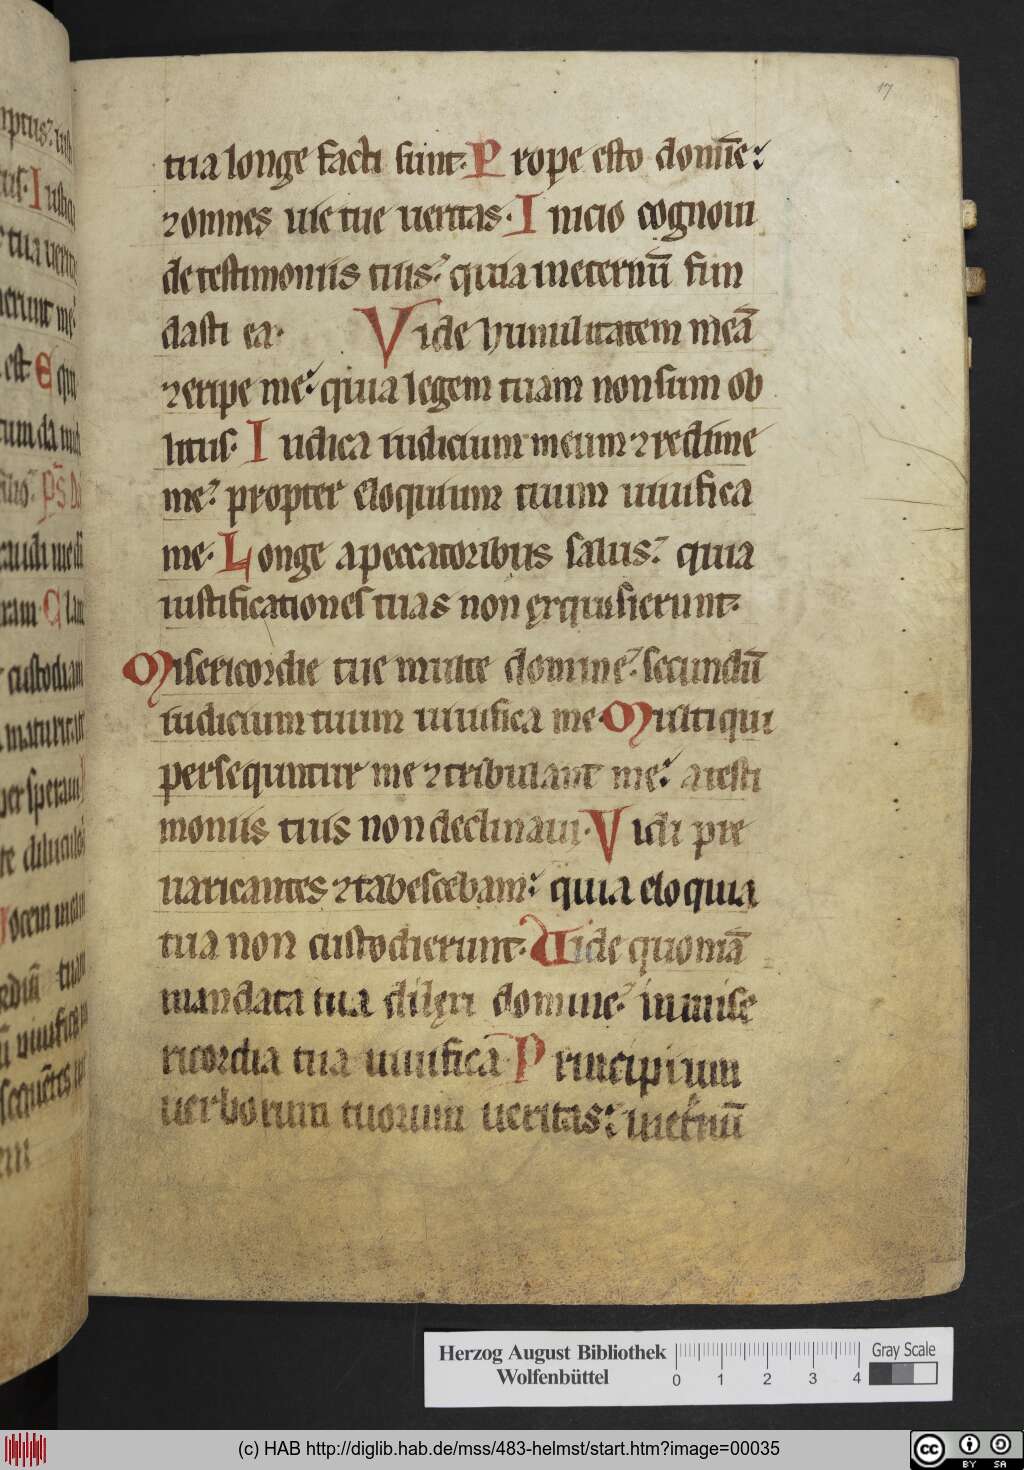 17
tua longe facti sunt. Prope esto domīe:
⁊ omnes uie tue ueritas. Inicio cognoui
de testimoniis tuis? quia in eternū fun
dasti ea. Vide humilitatem meā
⁊ eripe me: quia legem tuam non sum ob
litus. Iudica iudicium meum ⁊ redime
me? propter eloquium tuum uiuifica
me. Longe a peccatoribus salus? quia
iustificationes tuas non exquisierunt.
Misericordie tue multe domine? secundū
iudicium tuum uiuifica me. Multi qui
persequntur me ⁊ tribulant me: a testi
moniis tuis non declinaui. Vidi pre
uaricantes ⁊ tabescebam: quia eloquia
tua non custodierunt. Uide quoniā
mandata tua dilexi domine? in mise
ricordia tua uiuifica. Principium
uerborum tuorum ueritas: inet̉nū
Herzog August Bibliothek
Wolfenbüttel
0 1 2 3 4
Gray Scale
(c) HAB http://diglib.hab.de/mss/483-helmst/start.htm?image=00035
cc BY SA